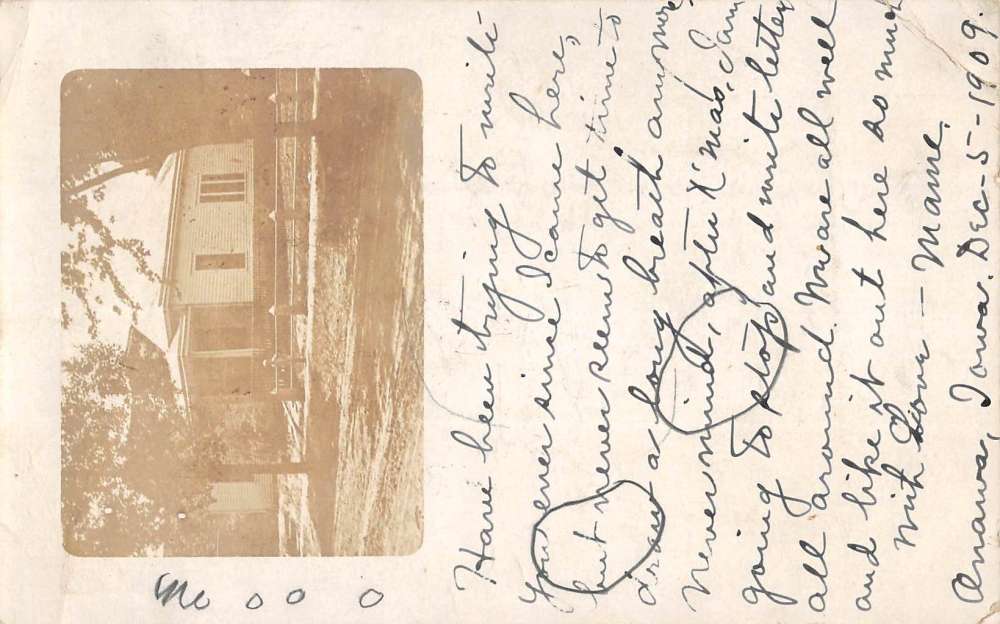 Have been trying to write
you ever since I came here,
but never seem to get time to
draw a long breath any more
Never mind, after X'mas, I am
going to stop and write letters
all around. We are all well
and like it out here so much
With Love - Mame.
Anawa, Iowa. Dec-5-1909.
Mo o o o